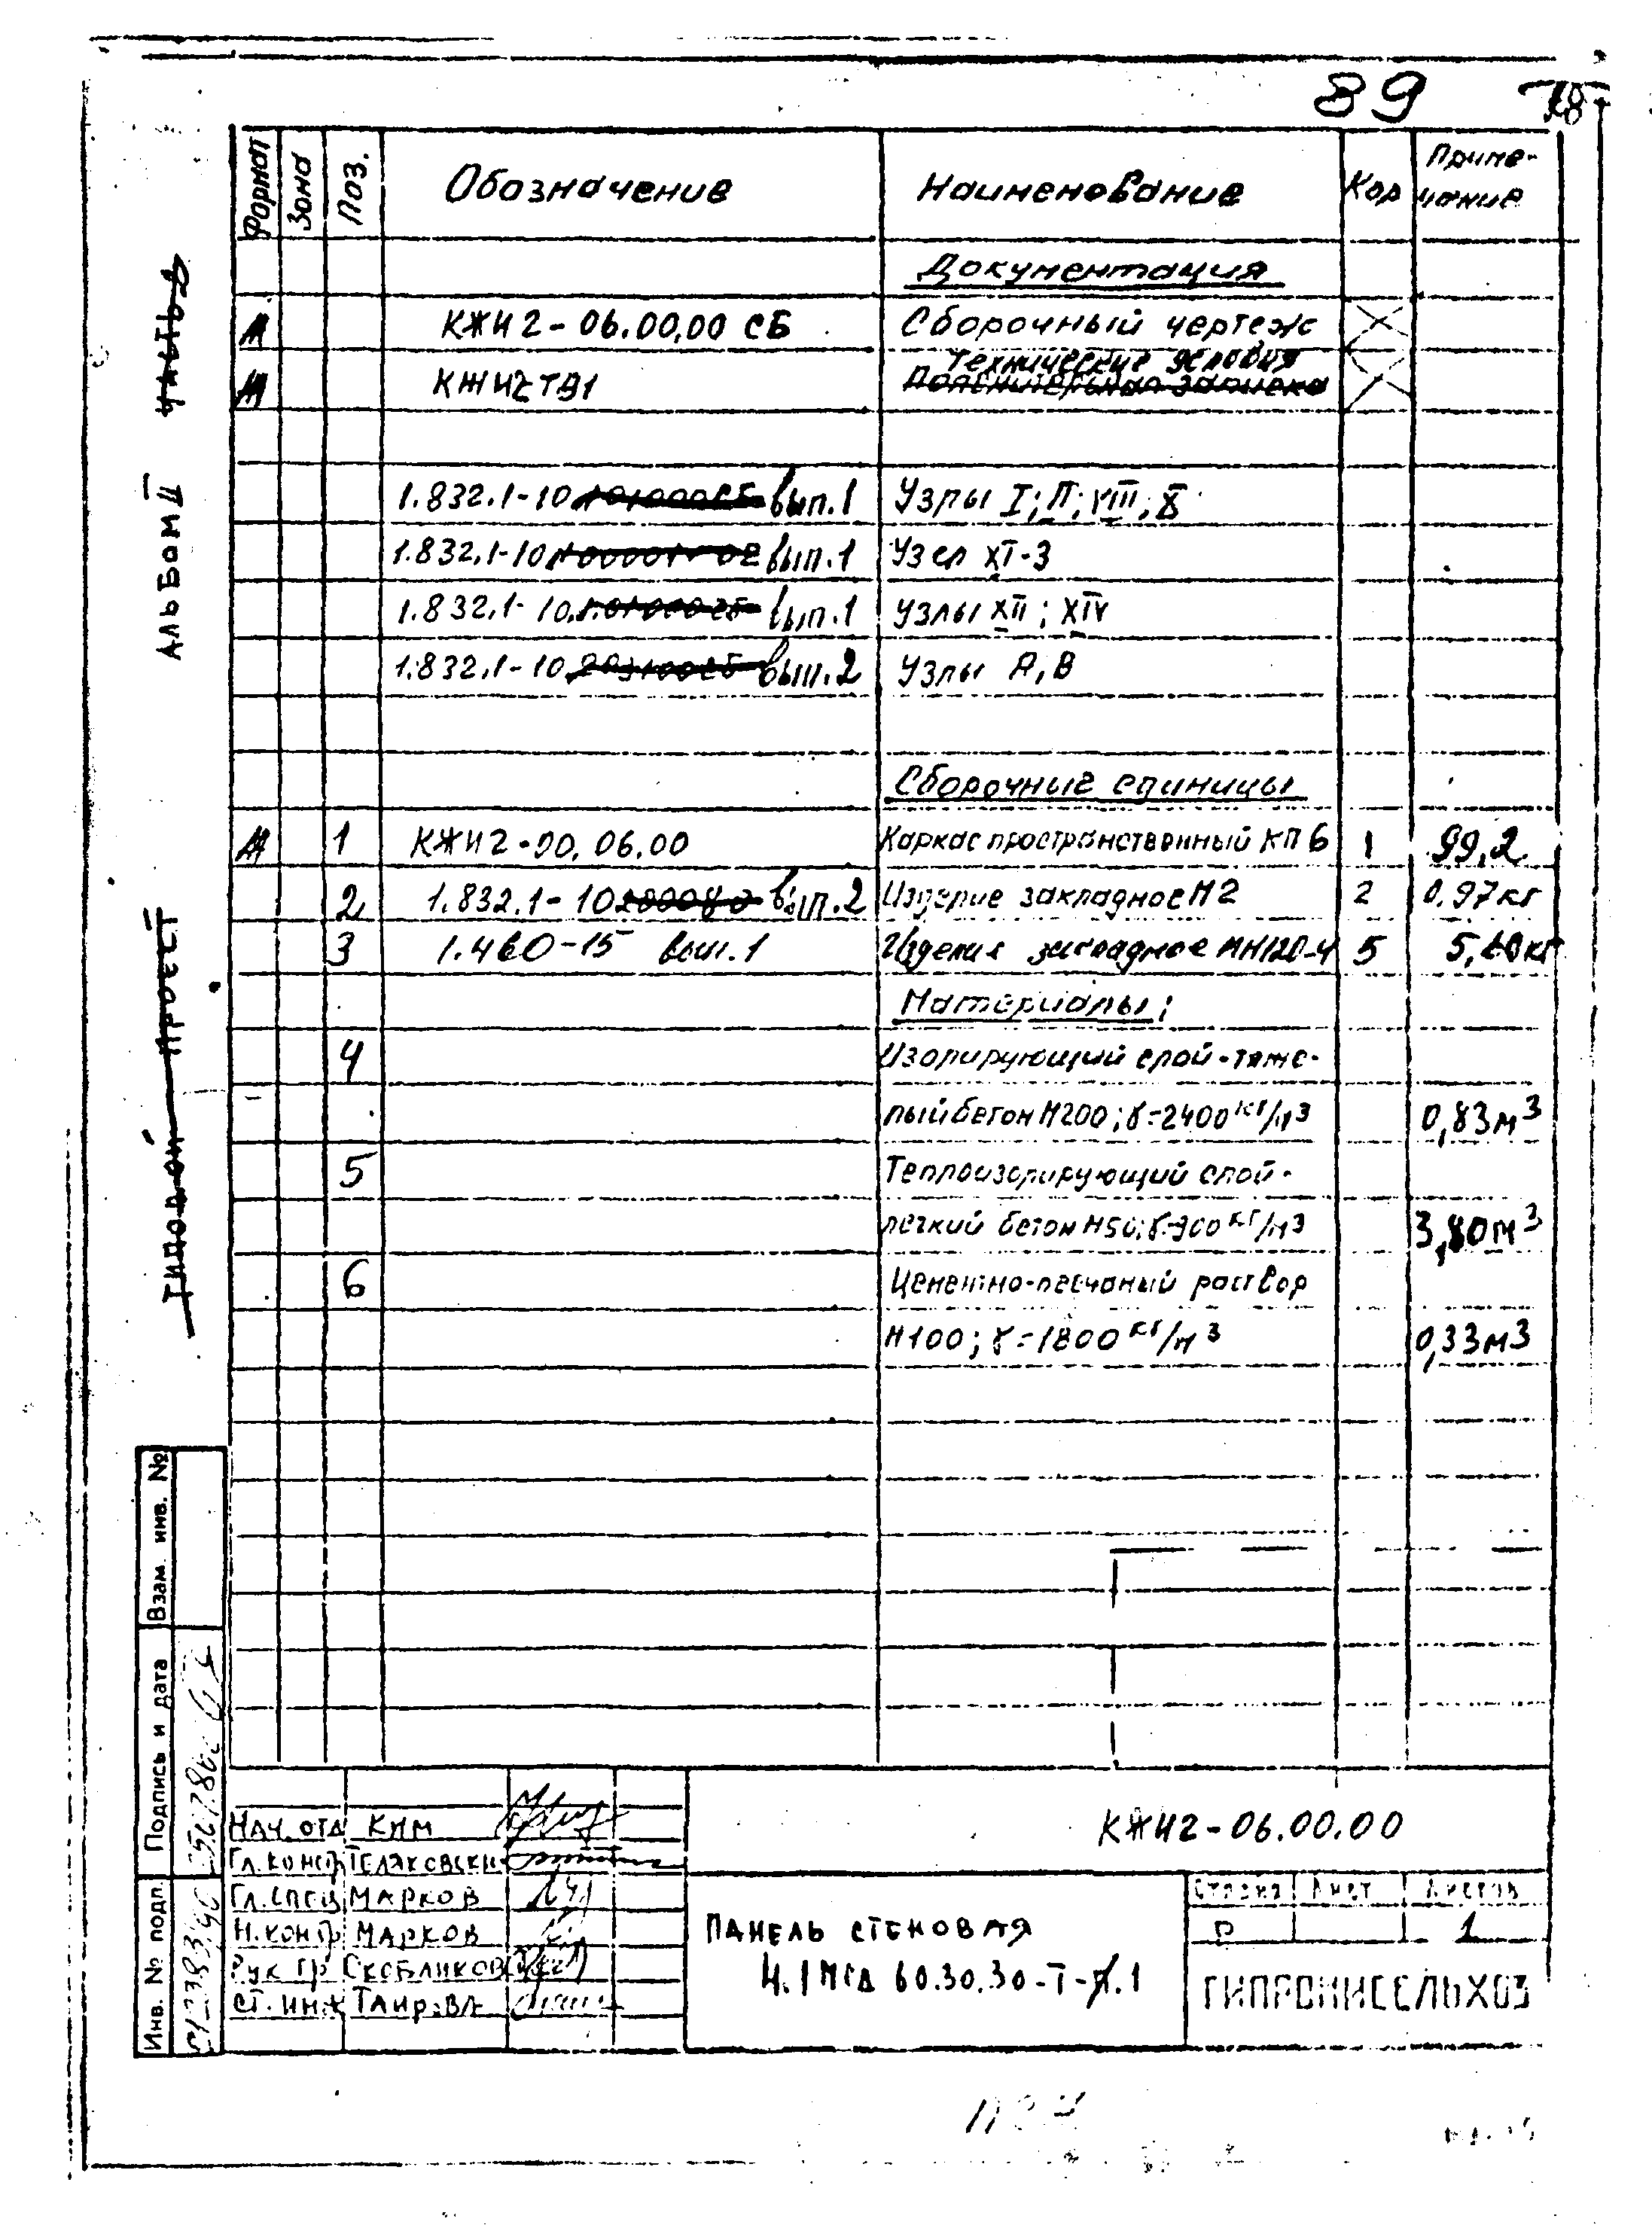 89
Формат Зона Поз. Обозначение Наименование Кол Приме-
чание
Документация
КЖИ2-06.00.00 СБ Сборочный чертеж
Технические условия
КЖИ2ТУ1 Пояснительная записка
1.832.1-10 вып.1 Узлы I; II; VIII; X
1.832.1-10 вып.1 Узел XI-3
1.832.1-10 вып.1 Узлы XII; XIV
1.832.1-10 вып.2 Узлы А, В
Сборочные единицы
1 КЖИ2-00.06.00 Каркас пространственный КП6 1 99,2
2 1.832.1-10 вып.2 Изделие закладное М2 2 0,97кг
3 1.460-15 вып.1 Изделие закладное МН120-4 5 кг
Материалы:
4 Изолирующий слой-тяже-
лый бетон М200; γ=2400 кг/м3 0,83м3
5 Теплоизолирующий слой-
легкий бетон М50; γ=900 кг/м3 3,80м3
6 Цементно-песчаный раствор
М100; γ=1800 кг/м3 0,33м3
АЛЬБОМ II ЧАСТЬ
ТИПОВОЙ ПРОЕКТ
Взам. инв. №
Подпись и дата
Инв. № подл.
КЖИ2-06.00.00
Нач. отд Ким
Гл. констр
Гл. спец Марков
Н. контр Марков
Рук. гр Скобликов
Ст. инж
Панель стеновая
60.30.30-Т-
Стадия Лист Листов
Р 1
ГИПРОНИСЕЛЬХОЗ